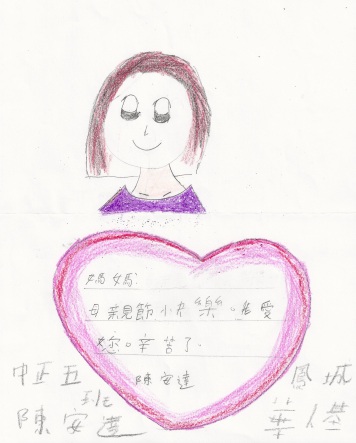 媽媽:
母親節快樂。我愛
您。辛苦了。
陳安達
中正五
班
陳安達
鳳城
華人基